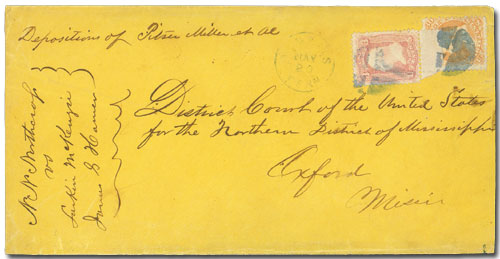 Depositions of Pitser Miller et al
N. N. Northcrop
vs
Larkin McKenzie
James G Hamer
District Court of the United States
for the Northern District of Mississippi
Oxford
Missi
MAY